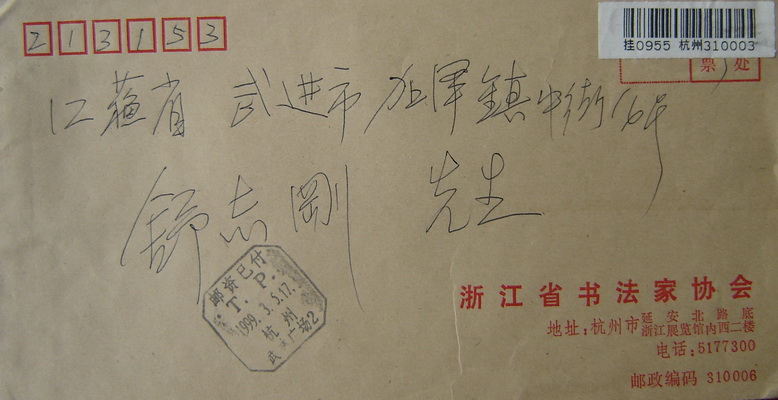 213153
桂0955 杭州310003
票 处
江蘇省 武进市 牛街16号
舒志剛 先生
邮资已付
T.P.
1999.3.5.17.
杭州
武林广场2
浙江省书法家协会
地址:杭州市延安北路底浙江展览馆内西二楼
电话:5177300
邮政编码 310006